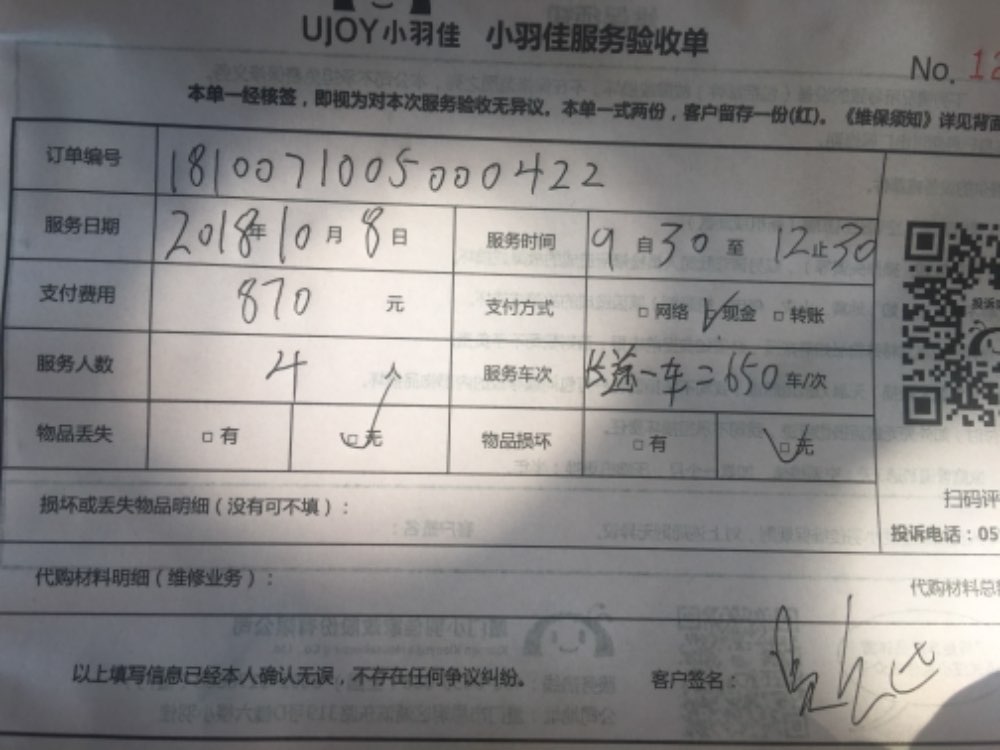 UJOY小羽佳 小羽佳服务验收单
No. 12
本单一经核签，即视为对本次服务验收无异议。本单一式两份，客户留存一份(红)。《维保须知》详见背面
订单编号 1810071005000422
服务日期 2018年10月8日 服务时间 9自30至12止30
支付费用 870元 支付方式 □网络 ☑现金 □转账
服务人数 4 服务车次 一车=650车/次
物品丢失 □有 ☑无 物品损坏 □有 ☑无
损坏或丢失物品明细（没有可不填）：
扫码评
投诉电话：05
代购材料明细（维修业务）：
代购材料总
以上填写信息已经本人确认无误，不存在任何争议纠纷。 客户签名：